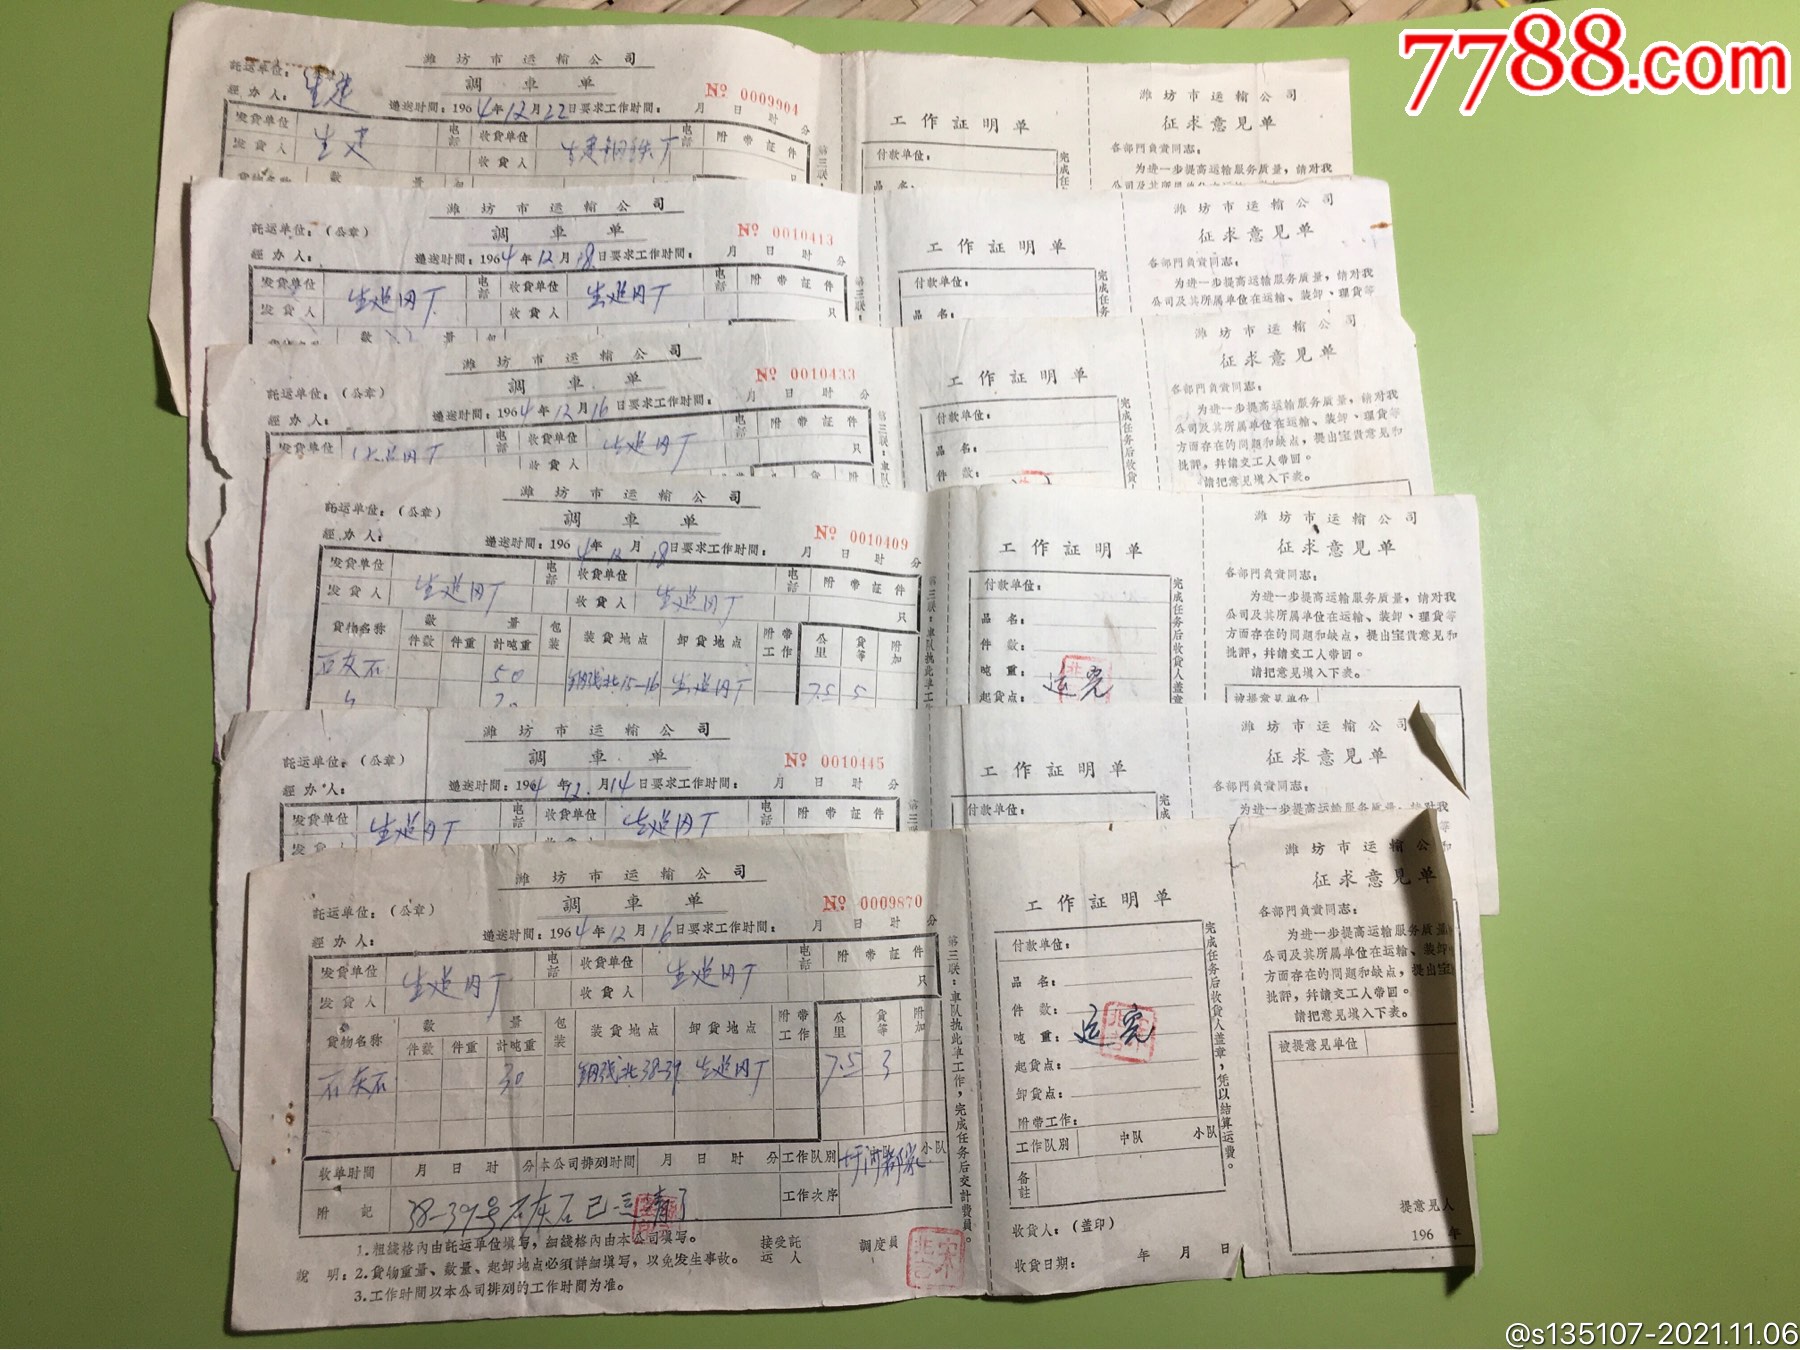 7788.com
潍坊市运输公司
調車单
№ 0009904
託运单位：
生建
經办人：
递送时間：1964年12月22日要求工作时間： 月 日 时 分
发貨单位 生建 电話 收貨单位 生建钢铁厂 电話 附带証件
发貨人 收貨人
工作証明单
付款单位：
品名：
潍坊市运輸公司
征求意見单
各部門負責同志：
为进一步提高运輸服务质量，請对我
潍坊市运輸公司
調車单
№ 0010413
託运单位：（公章）
經办人：
递送时間：1964年12月18日要求工作时間： 月 日 时 分
发貨单位 电話 收貨单位 电話 附带証件
发貨人 收貨人 只
工作証明单
付款单位：
品名：
潍坊市运輸公司
征求意見单
各部門負責同志：
为进一步提高运輸服务质量，請对我
公司及其所属单位在运輸、装卸、理貨等
潍坊市运輸公司
調車单
№ 0010433
託运单位：（公章）
經办人：
递送时間：1964年12月16日要求工作时間： 月 日 时 分
发貨单位 电話 收貨单位 电話 附带証件
收貨人 只
工作証明单
付款单位：
品名：
件数：
潍坊市运輸公司
征求意見单
各部門負責同志：
为进一步提高运輸服务质量，請对我
公司及其所属单位在运輸、装卸、理貨等
方面存在的問題和缺点，提出宝贵意見和
批評，幷請交工人带回。
請把意見填入下表。
潍坊市运輸公司
調車单
№ 0010409
託运单位：（公章）
經办人：
递送时間：1964年12月18日要求工作时間： 月 日 时 分
发貨单位 电話 收貨单位 电話 附带証件
发貨人 收貨人 只
貨物名称 数量 包装 装貨地点 卸貨地点 附带工作 公里 貨等 附加
件数 件重 計吨重
石灰石 50 15-16 7.5 5
工作証明单
付款单位：
品名：
件数：
吨重：
起貨点：
完成任务后收貨人盖章
潍坊市运輸公司
征求意見单
各部門負責同志：
为进一步提高运輸服务质量，請对我
公司及其所属单位在运輸、装卸、理貨等
方面存在的問題和缺点，提出宝贵意見和
批評，幷請交工人带回。
請把意見填入下表。
被提意見单位
潍坊市运輸公司
調車单
№ 0010445
託运单位：（公章）
經办人：
递送时間：1964年12月14日要求工作时間： 月 日 时 分
发貨单位 电話 收貨单位 电話 附带証件
工作証明单
付款单位：
潍坊市运輸公司
征求意見单
各部門負責同志：
为进一步提高运輸服务质量，請对我
潍坊市运輸公司
調車单
№ 0009870
託运单位：（公章）
經办人：
递送时間：1964年12月16日要求工作时間： 月 日 时 分
发貨单位 电話 收貨单位 电話 附带証件
发貨人 收貨人 只
貨物名称 数量 包装 装貨地点 卸貨地点 附带工作 公里 貨等 附加
件数 件重 計吨重
石灰石 30 38-39 7.5 3
收单时間 月 日 时 分 本公司排列时間 月 日 时 分 工作队别 小队
工作次序
附記 38-39号石灰石已 清了
說明：1.粗綫格內由託运单位填写，細綫格內由本公司填写。
2.貨物重量、数量、起卸地点必須詳細填写，以免发生事故。
3.工作时間以本公司排列的工作时間为准。
接受託运人 調度員
第三联：車队执此单工作，完成任务后交計費員。
工作証明单
付款单位：
品名：
件数：
吨重：
起貨点：
卸貨点：
附带工作：
工作队别 中队 小队
备註
收貨人：（盖印）
收貨日期： 年 月 日
完成任务后收貨人盖章，凭以結算运費。
潍坊市运輸公
征求意見单
各部門負責同志：
为进一步提高运輸服务质量
公司及其所属单位在运輸、装卸
方面存在的問題和缺点，提出宝
批評，幷請交工人带回。
請把意見填入下表。
被提意見单位
提意見人
196 年
@s135107-2021.11.06